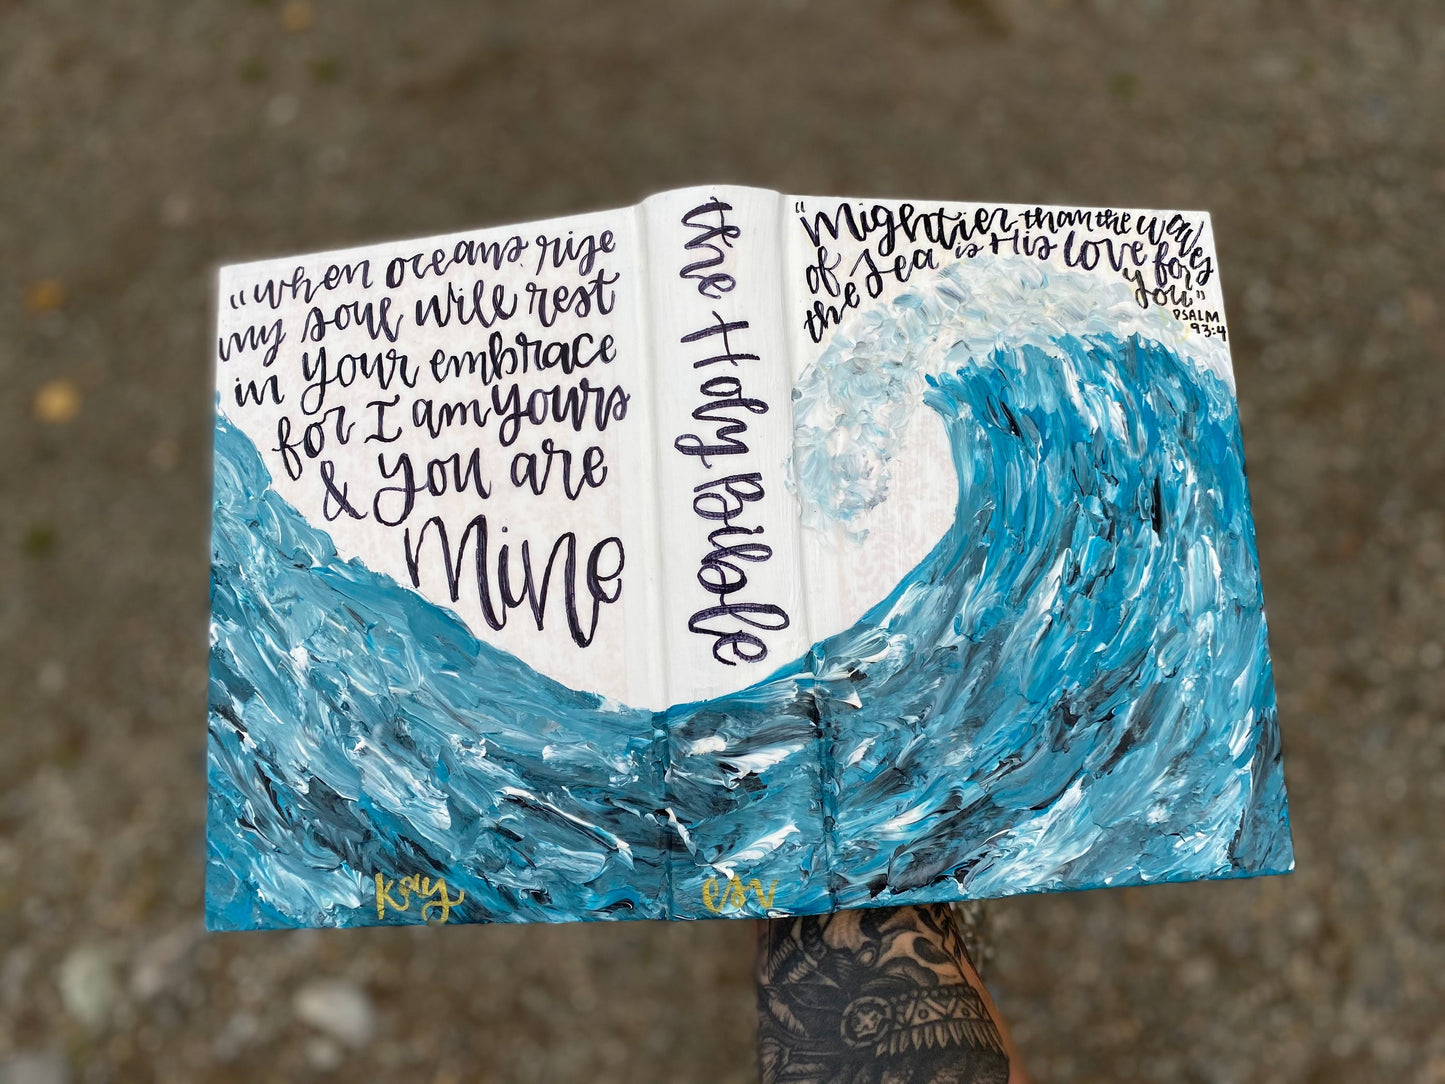 "when oceans rise
my soul will rest
in your embrace
for I am yours
& you are
Mine
Kay
the Holy Bible
esv
"Mightier than the waves
of sea is His love for
the you"
PSALM
93:4